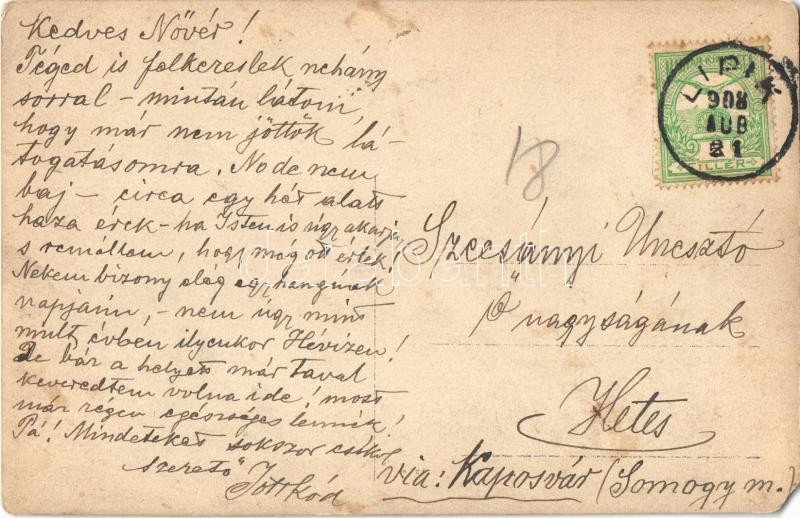 Kedves Nővér!
Téged is felkereslek nehány
sorral – miután látom,
hogy már nem jöttök lá-
togatásomra. No de nem
baj – circa egy hét alatt
haza érek – ha Isten is úgy akarja
s remélem, hogy meg ott érlek!
Nekem bizony elég egyhangúak
napjaim, – nem úgy mint
mult évben ilyenkor Hévizen!
De bár a helyett már taval
keveredtem volna ide! most
már régen egészséges lennék!
Pá! Mindeteket sokszor csókol
szerető
LIPIK
908
AUG
21
FILLÉR
18
Szecsányi
Ő nagyságának
Hetes
via: Kaposvár (Somogy m.)
darabanth